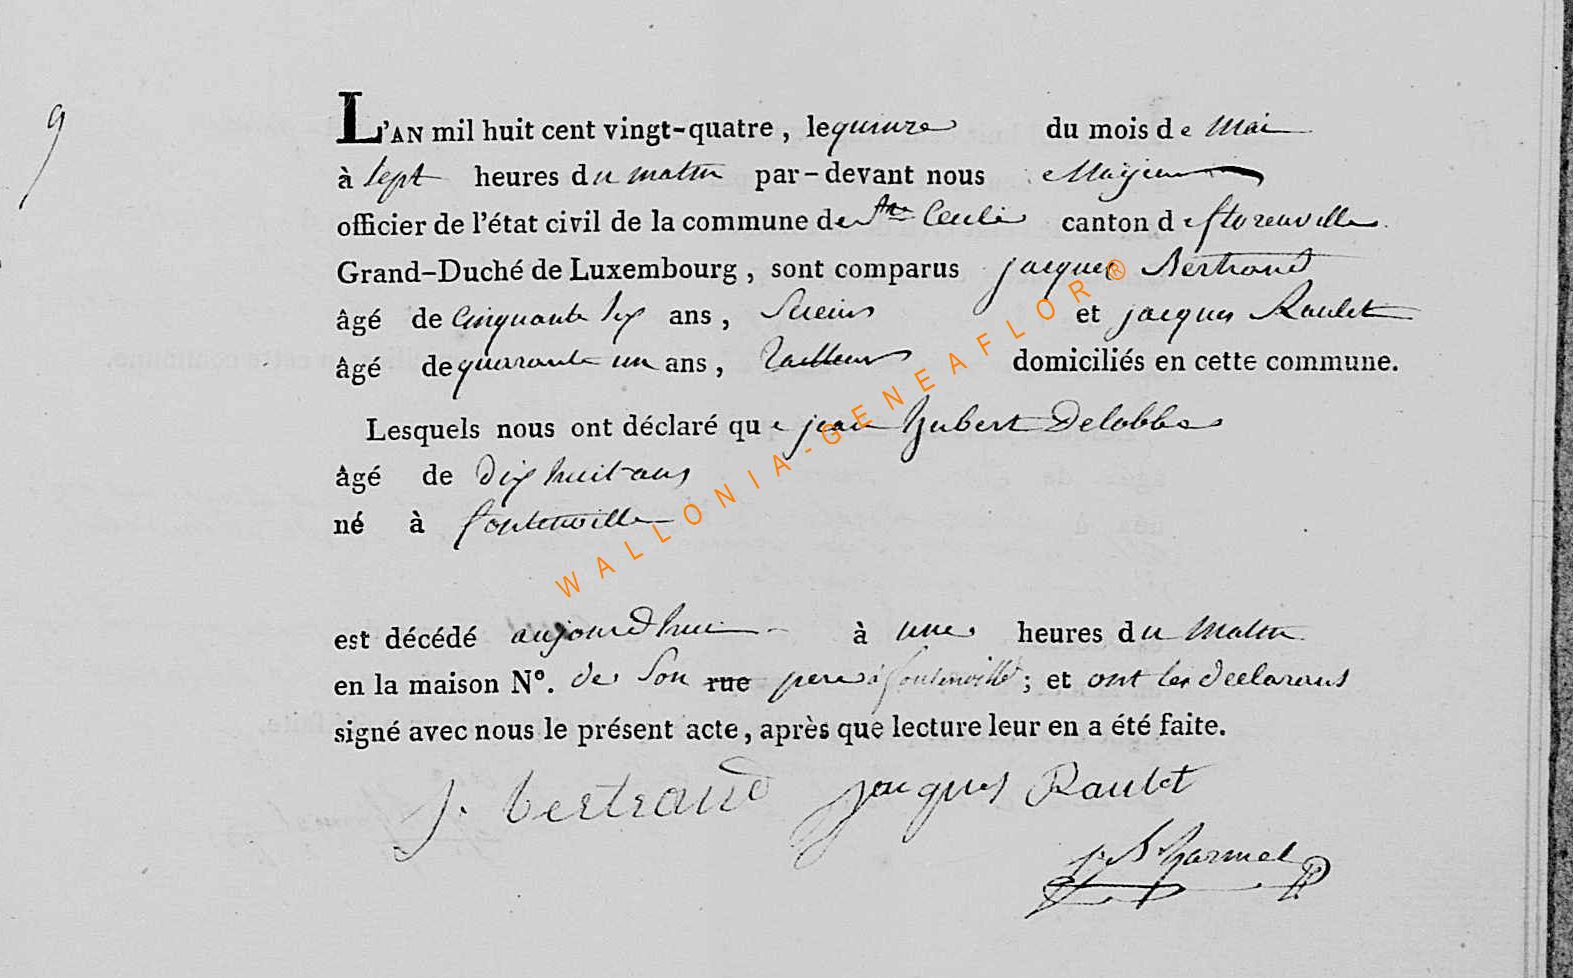 9
L'AN mil huit cent vingt-quatre, le quinze du mois de Mai
à sept heures du matin par-devant nous Mayeur
officier de l'état civil de la commune de Ste Cecile canton de florenville
Grand-Duché de Luxembourg, sont comparus jacques Bertrand
âgé de cinquante six ans, et jacques Raulet
âgé de quarante un ans, tailleur domiciliés en cette commune.
Lesquels nous ont déclaré que jean hubert Delobbe
âgé de dix huit ans
né à fontenville
est décédé aujourd'hui à une heures du Matin
en la maison N°. de son rue pere à fontenville; et ont les declarans
signé avec nous le présent acte, après que lecture leur en a été faite.
J. bertrand jacques Raulet
WALLONIA-GENEAFLOR®